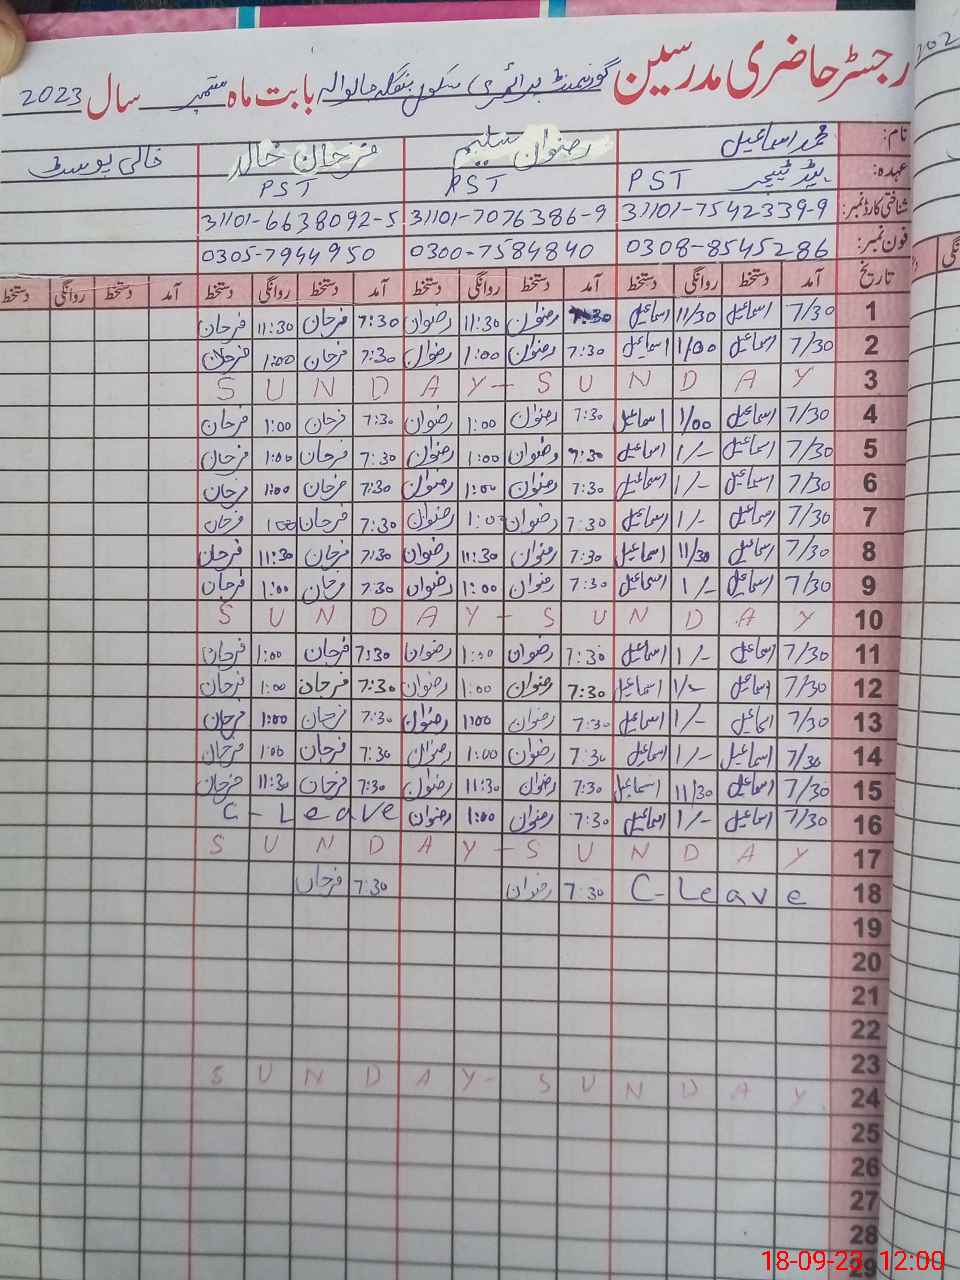 رجسٹر حاضری مدرسین گورنمنٹ پرائمری سکول بنگلہ حالوالہ بابت ماہ ستمبر سال 2023
نام: محمد اسماعیل رضوان سلیم فرحان خالد خالی پوسٹ
عہدہ: ہیڈ ٹیچر PST PST PST
شناختی کارڈ نمبر: 31101-7542339-9 31101-7076386-9 31101-6638092-5
فون نمبر: 0308-8545286 0300-7584840 0305-7944950
تاریخ آمد دستخط روانگی دستخط آمد دستخط روانگی دستخط آمد دستخط روانگی دستخط آمد دستخط روانگی دستخط
1 7/30 اسماعیل 11/30 اسماعیل 7:30 رضوان 11:30 رضوان 7:30 فرحان 11:30 فرحان
2 7/30 اسماعیل 1/00 اسماعیل 7:30 رضوان 1:00 رضوان 7:30 فرحان 1:00 فرحان
3 SUNDAY-SUNDAY
4 7/30 اسماعیل 1/00 اسماعیل 7:30 رضوان 1:00 رضوان 7:30 فرحان 1:00 فرحان
5 7/30 اسماعیل 1/- اسماعیل 7:30 رضوان 1:00 رضوان 7:30 فرحان 1:00 فرحان
6 7/30 اسماعیل 1/- اسماعیل 7:30 رضوان 1:00 رضوان 7:30 فرحان 1:00 فرحان
7 7/30 اسماعیل 1/- اسماعیل 7:30 رضوان 1:00 رضوان 7:30 فرحان 1:00 فرحان
8 7/30 اسماعیل 11/30 اسماعیل 7:30 رضوان 11:30 رضوان 7:30 فرحان 11:30 فرحان
9 7/30 اسماعیل 1/- اسماعیل 7:30 رضوان 1:00 رضوان 7:30 فرحان 1:00 فرحان
10 SUNDAY-SUNDAY
11 7/30 اسماعیل 1/- اسماعیل 7:30 رضوان 1:00 رضوان 7:30 فرحان 1:00 فرحان
12 7/30 اسماعیل 1/- اسماعیل 7:30 رضوان 1:00 رضوان 7:30 فرحان 1:00 فرحان
13 7/30 اسماعیل 1/- اسماعیل 7:30 رضوان 1:00 رضوان 7:30 فرحان 1:00 فرحان
14 7/30 اسماعیل 1/- اسماعیل 7:30 رضوان 1:00 رضوان 7:30 فرحان 1:00 فرحان
15 7/30 اسماعیل 11/30 اسماعیل 7:30 رضوان 11:30 رضوان 7:30 فرحان 11:30 فرحان
16 7/30 اسماعیل 1/- اسماعیل 7:30 رضوان 1:00 رضوان C-Leave
17 SUNDAY-SUNDAY
18 C-Leave 7:30 رضوان 7:30 فرحان
19
20
21
22
23
24 SUNDAY-SUNDAY
25
26
27
28
29
18-09-23, 12:00